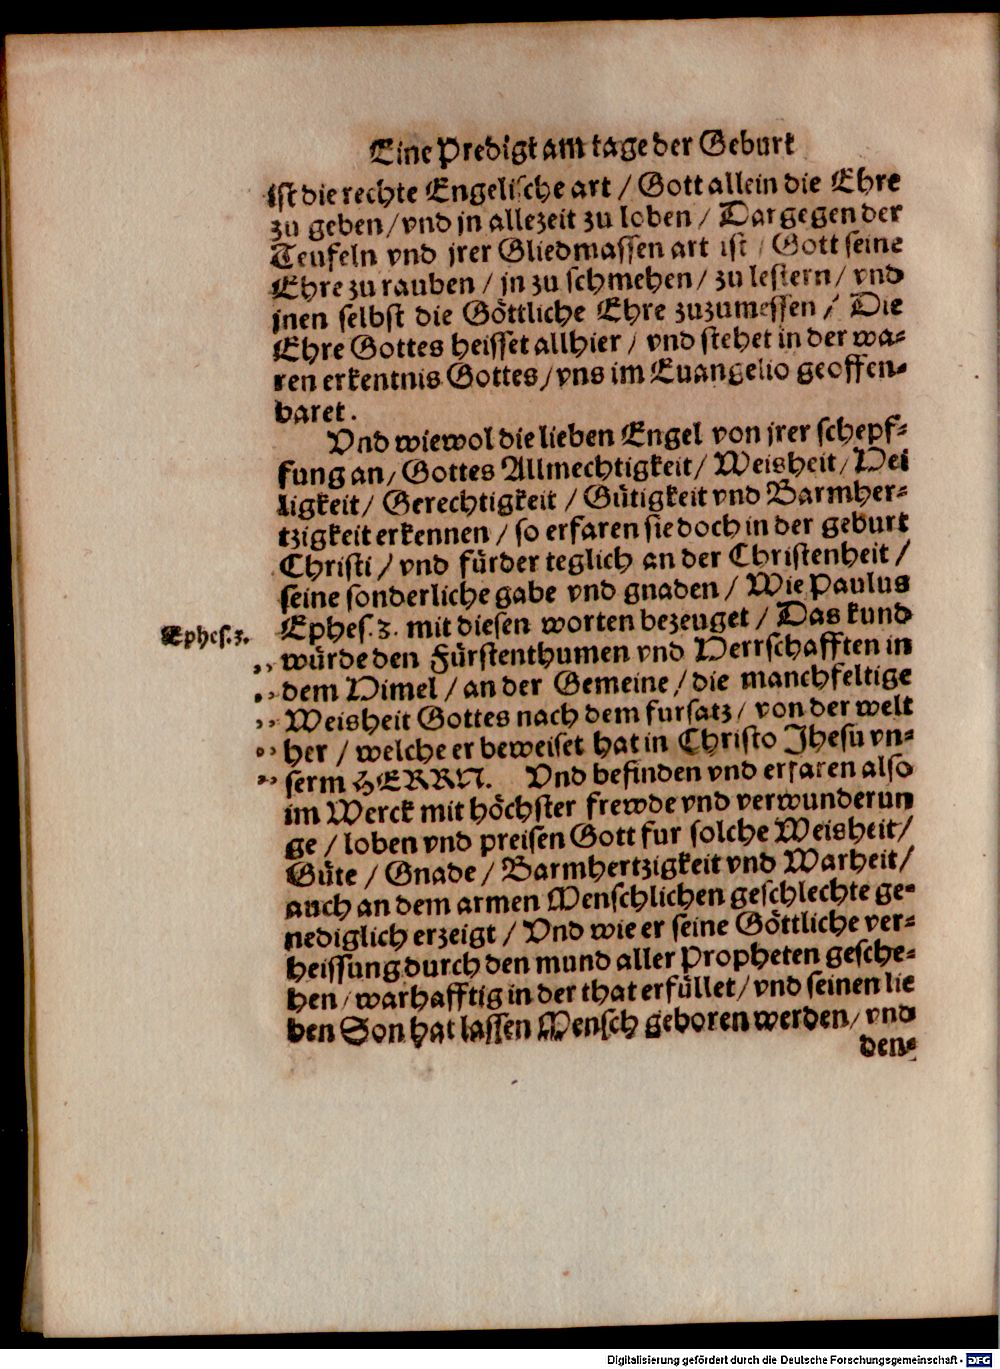 Eine Predigt am tage der Geburt
ist die rechte Engelische art / Gott allein die Ehre
zu geben / vnd jn allezeit zu loben / Dargegen der
Teufeln vnd jrer Gliedmassen art ist / Gott seine
Ehre zu rauben / jn zu schmehen / zu lestern / vnd
jnen selbst die Göttliche Ehre zuzumessen / Die
Ehre Gottes heisset allhier / vnd stehet in der wa-
ren erkentnis Gottes / vns im Euangelio geoffen-
baret.
Vnd wiewol die lieben Engel von jrer schepf-
fung an / Gottes Allmechtigkeit / Weisheit / Hei
ligkeit / Gerechtigkeit / Gütigkeit vnd Barmher-
tzigkeit erkennen / so erfaren sie doch in der geburt
Christi / vnd fürder teglich an der Christenheit /
seine sonderliche gabe vnd gnaden / Wie Paulus
Ephes. 3. Ephes. 3. mit diesen worten bezeuget / Das kund
„ würde den Fürstenthumen vnd Herrschafften in
„ dem Himel / an der Gemeine / die manchfeltige
„ Weisheit Gottes nach dem fursatz / von der welt
„ her / welche er beweiset hat in Christo Jhesu vn-
„ serm HERRN. Vnd befinden vnd erfaren also
im Werck mit höchster frewde vnd verwunderun
ge / loben vnd preisen Gott fur solche Weisheit /
Güte / Gnade / Barmhertzigkeit vnd Warheit /
auch an dem armen Menschlichen geschlechte ge-
nediglich erzeigt / Vnd wie er seine Göttliche ver-
heissung durch den mund aller Propheten gesche-
hen / warhafftig in der that erfüllet / vnd seinen lie
ben Son hat lassen Mensch geboren werden / vnd
den-
Digitalisierung gefördert durch die Deutsche Forschungsgemeinschaft - DFG